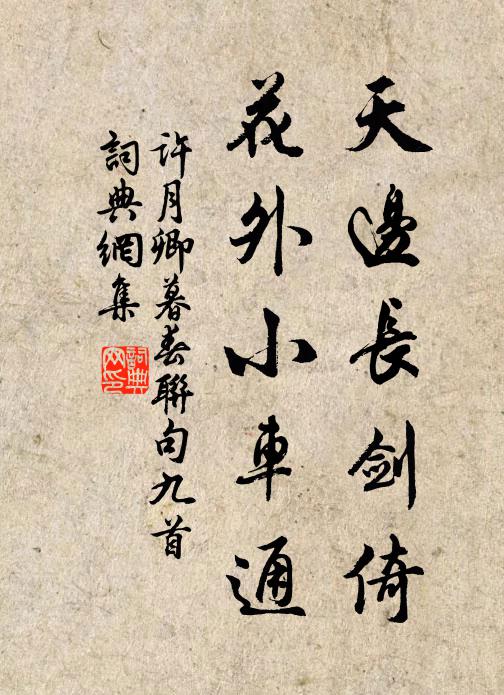 天邊長劍倚
花外小車通
許月卿暮春聯句九首
詞典網集
詞典網印